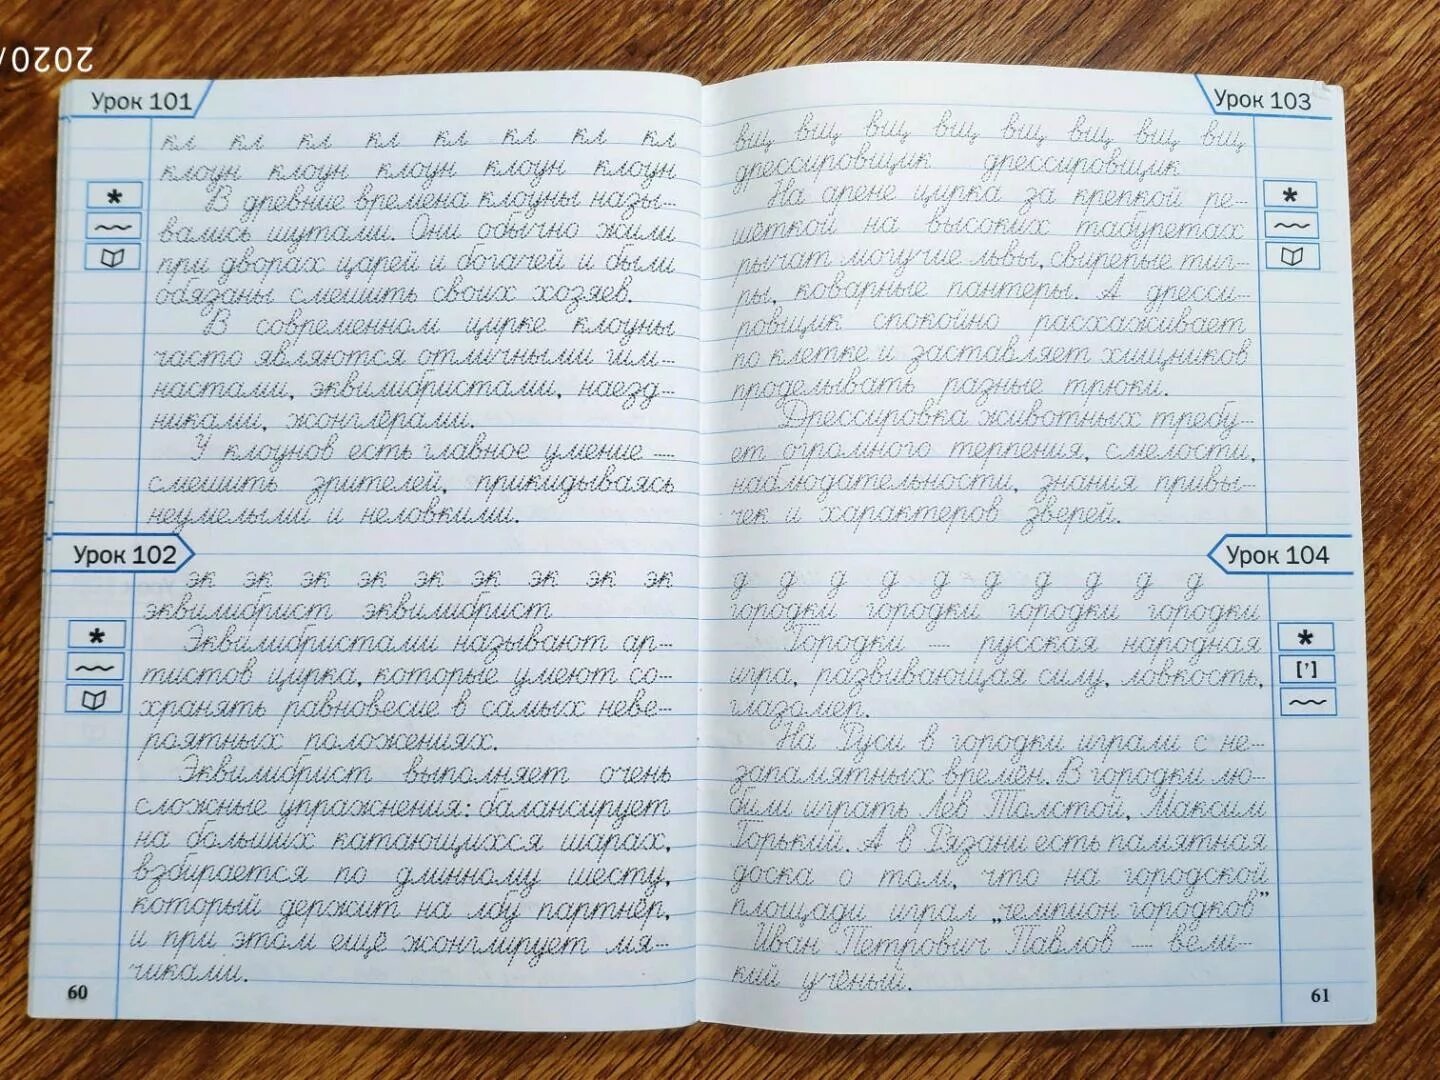 2020/
Урок 101
кл кл кл кл кл кл кл кл
клоун клоун клоун клоун клоун
В древние времена клоуны назы-
вались шутами. Они обычно жили
при дворах царей и богачей и были
обязаны смешить своих хозяев.
В современном цирке клоуны
часто являются отличными гим-
настами, эквилибристами, наезд-
никами, жонглёрами.
У клоунов есть главное умение —
смешить зрителей, прикидываясь
неумелыми и неловкими.
Урок 102
эк эк эк эк эк эк эк эк эк
эквилибрист эквилибрист
Эквилибристами называют ар-
тистов цирка, которые умеют со-
хранять равновесие в самых неве-
роятных положениях.
Эквилибрист выполняет очень
сложные упражнения: балансирует
на больших катающихся шарах,
взбирается по длинному шесту,
который держит на лбу партнёр,
и при этом ещё жонглирует мя-
чиками.
60
Урок 103
вщ вщ вщ вщ вщ вщ вщ вщ
дрессировщик дрессировщик
На арене цирка за крепкой ре-
шёткой на высоких табуретах
рычат могучие львы, свирепые тиг-
ры, коварные пантеры. А дресси-
ровщик спокойно расхаживает
по клетке и заставляет хищников
проделывать разные трюки.
Дрессировка животных требу-
ет огромного терпения, смелости,
наблюдательности, знания привы-
чек и характеров зверей.
Урок 104
д д д д д д д д д д
городки городки городки городки
Городки — русская народная
игра, развивающая силу, ловкость,
глазомер.
На Руси в городки играли с не-
запамятных времён. В городки лю-
били играть Лев Толстой, Максим
Горький. А в Рязани есть памятная
доска о том, что на городской
площади играл „чемпион городков"
Иван Петрович Павлов — вели-
кий учёный.
61